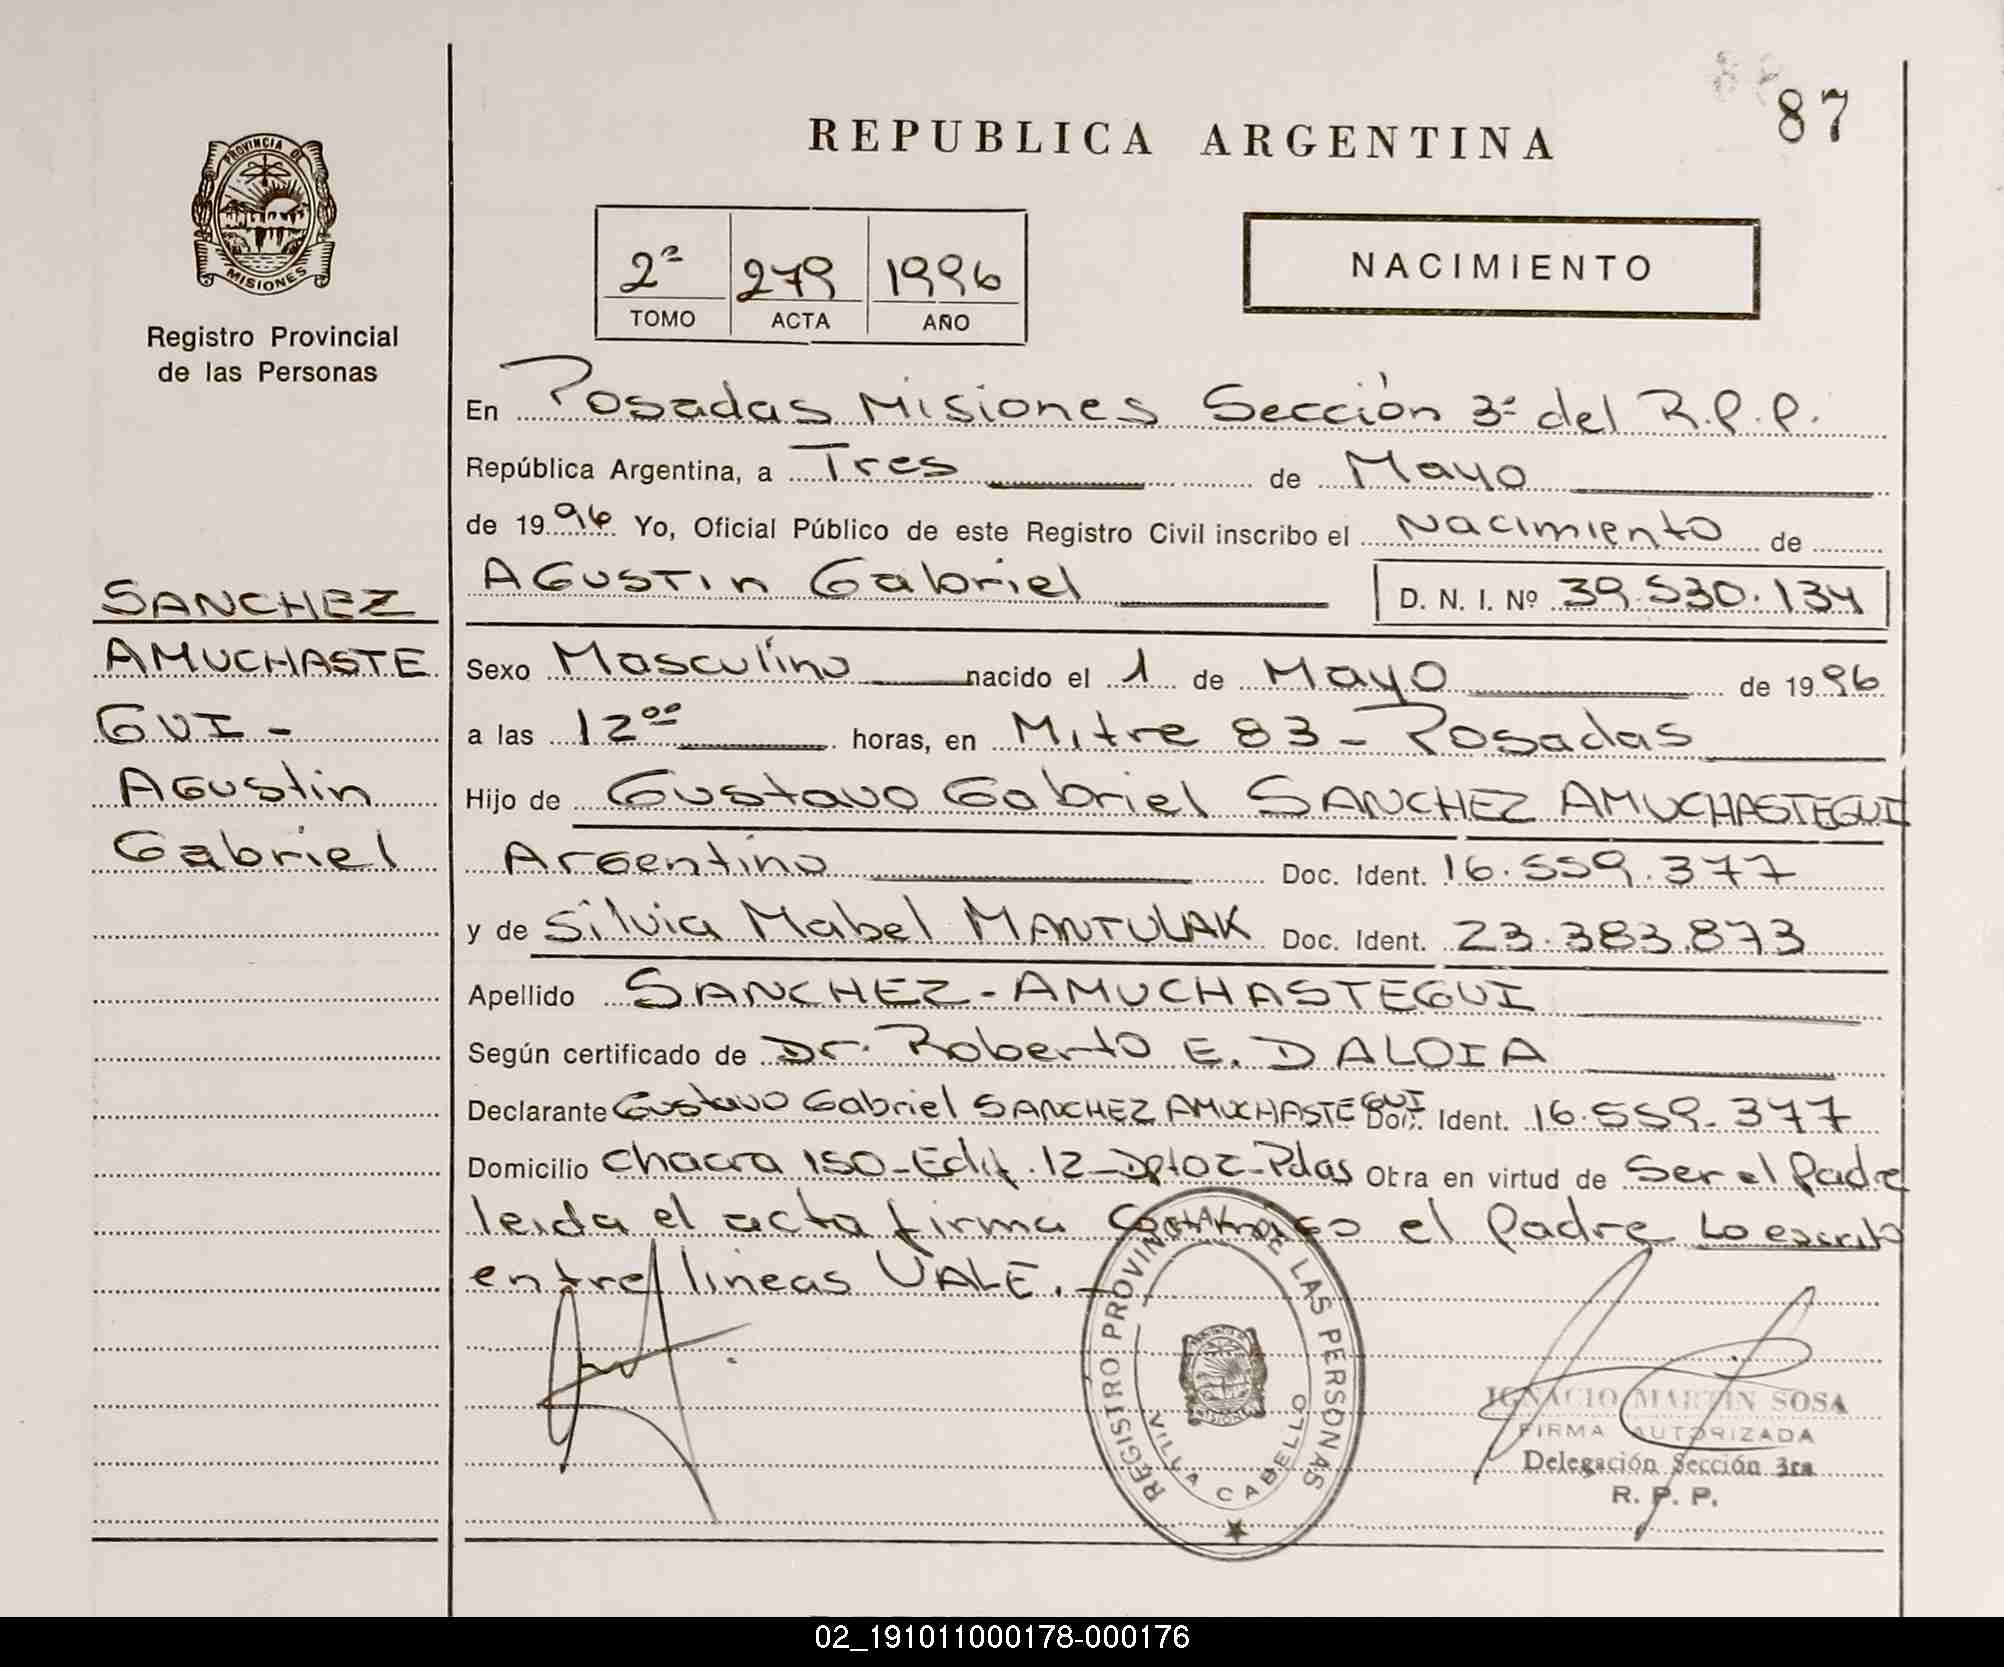 87
REPUBLICA ARGENTINA
PROVINCIA DE
MISIONES
Registro Provincial
de las Personas
2ª 279 1996
TOMO ACTA AÑO
NACIMIENTO
En Posadas Misiones Sección 3ª del R.P.P.
República Argentina, a Tres de Mayo
de 1996 Yo, Oficial Público de este Registro Civil inscribo el Nacimiento de
AGUSTIN Gabriel D. N. I. Nº 39.530.134
SANCHEZ
AMUCHASTE
GUI -
Agustin
Gabriel
Sexo Masculino nacido el 1 de Mayo de 1996
a las 12⁰⁰ horas, en Mitre 83 - Posadas
Hijo de Gustavo Gabriel SANCHEZ AMUCHASTEGUI
Argentino Doc. Ident. 16.559.377
y de Silvia Mabel MANTULAK Doc. Ident. 23.383.873
Apellido SANCHEZ - AMUCHASTEGUI
Según certificado de Dr. Roberto E. DALOIA
Declarante Gustavo Gabriel SANCHEZ AMUCHASTEGUI Doc. Ident. 16.559.377
Domicilio Chacra 150 - Edif. 12 - Dpto 2 - Pdas Obra en virtud de Ser el Padre
leida el acta firma conmigo el Padre Lo escrito
entre lineas VALE. -
REGISTRO PROVINCIAL DE LAS PERSONAS
MISIONES
VILLA CABELLO
IGNACIO MARTIN SOSA
FIRMA AUTORIZADA
Delegación Sección 3ra
R. P. P.
02_191011000178-000176